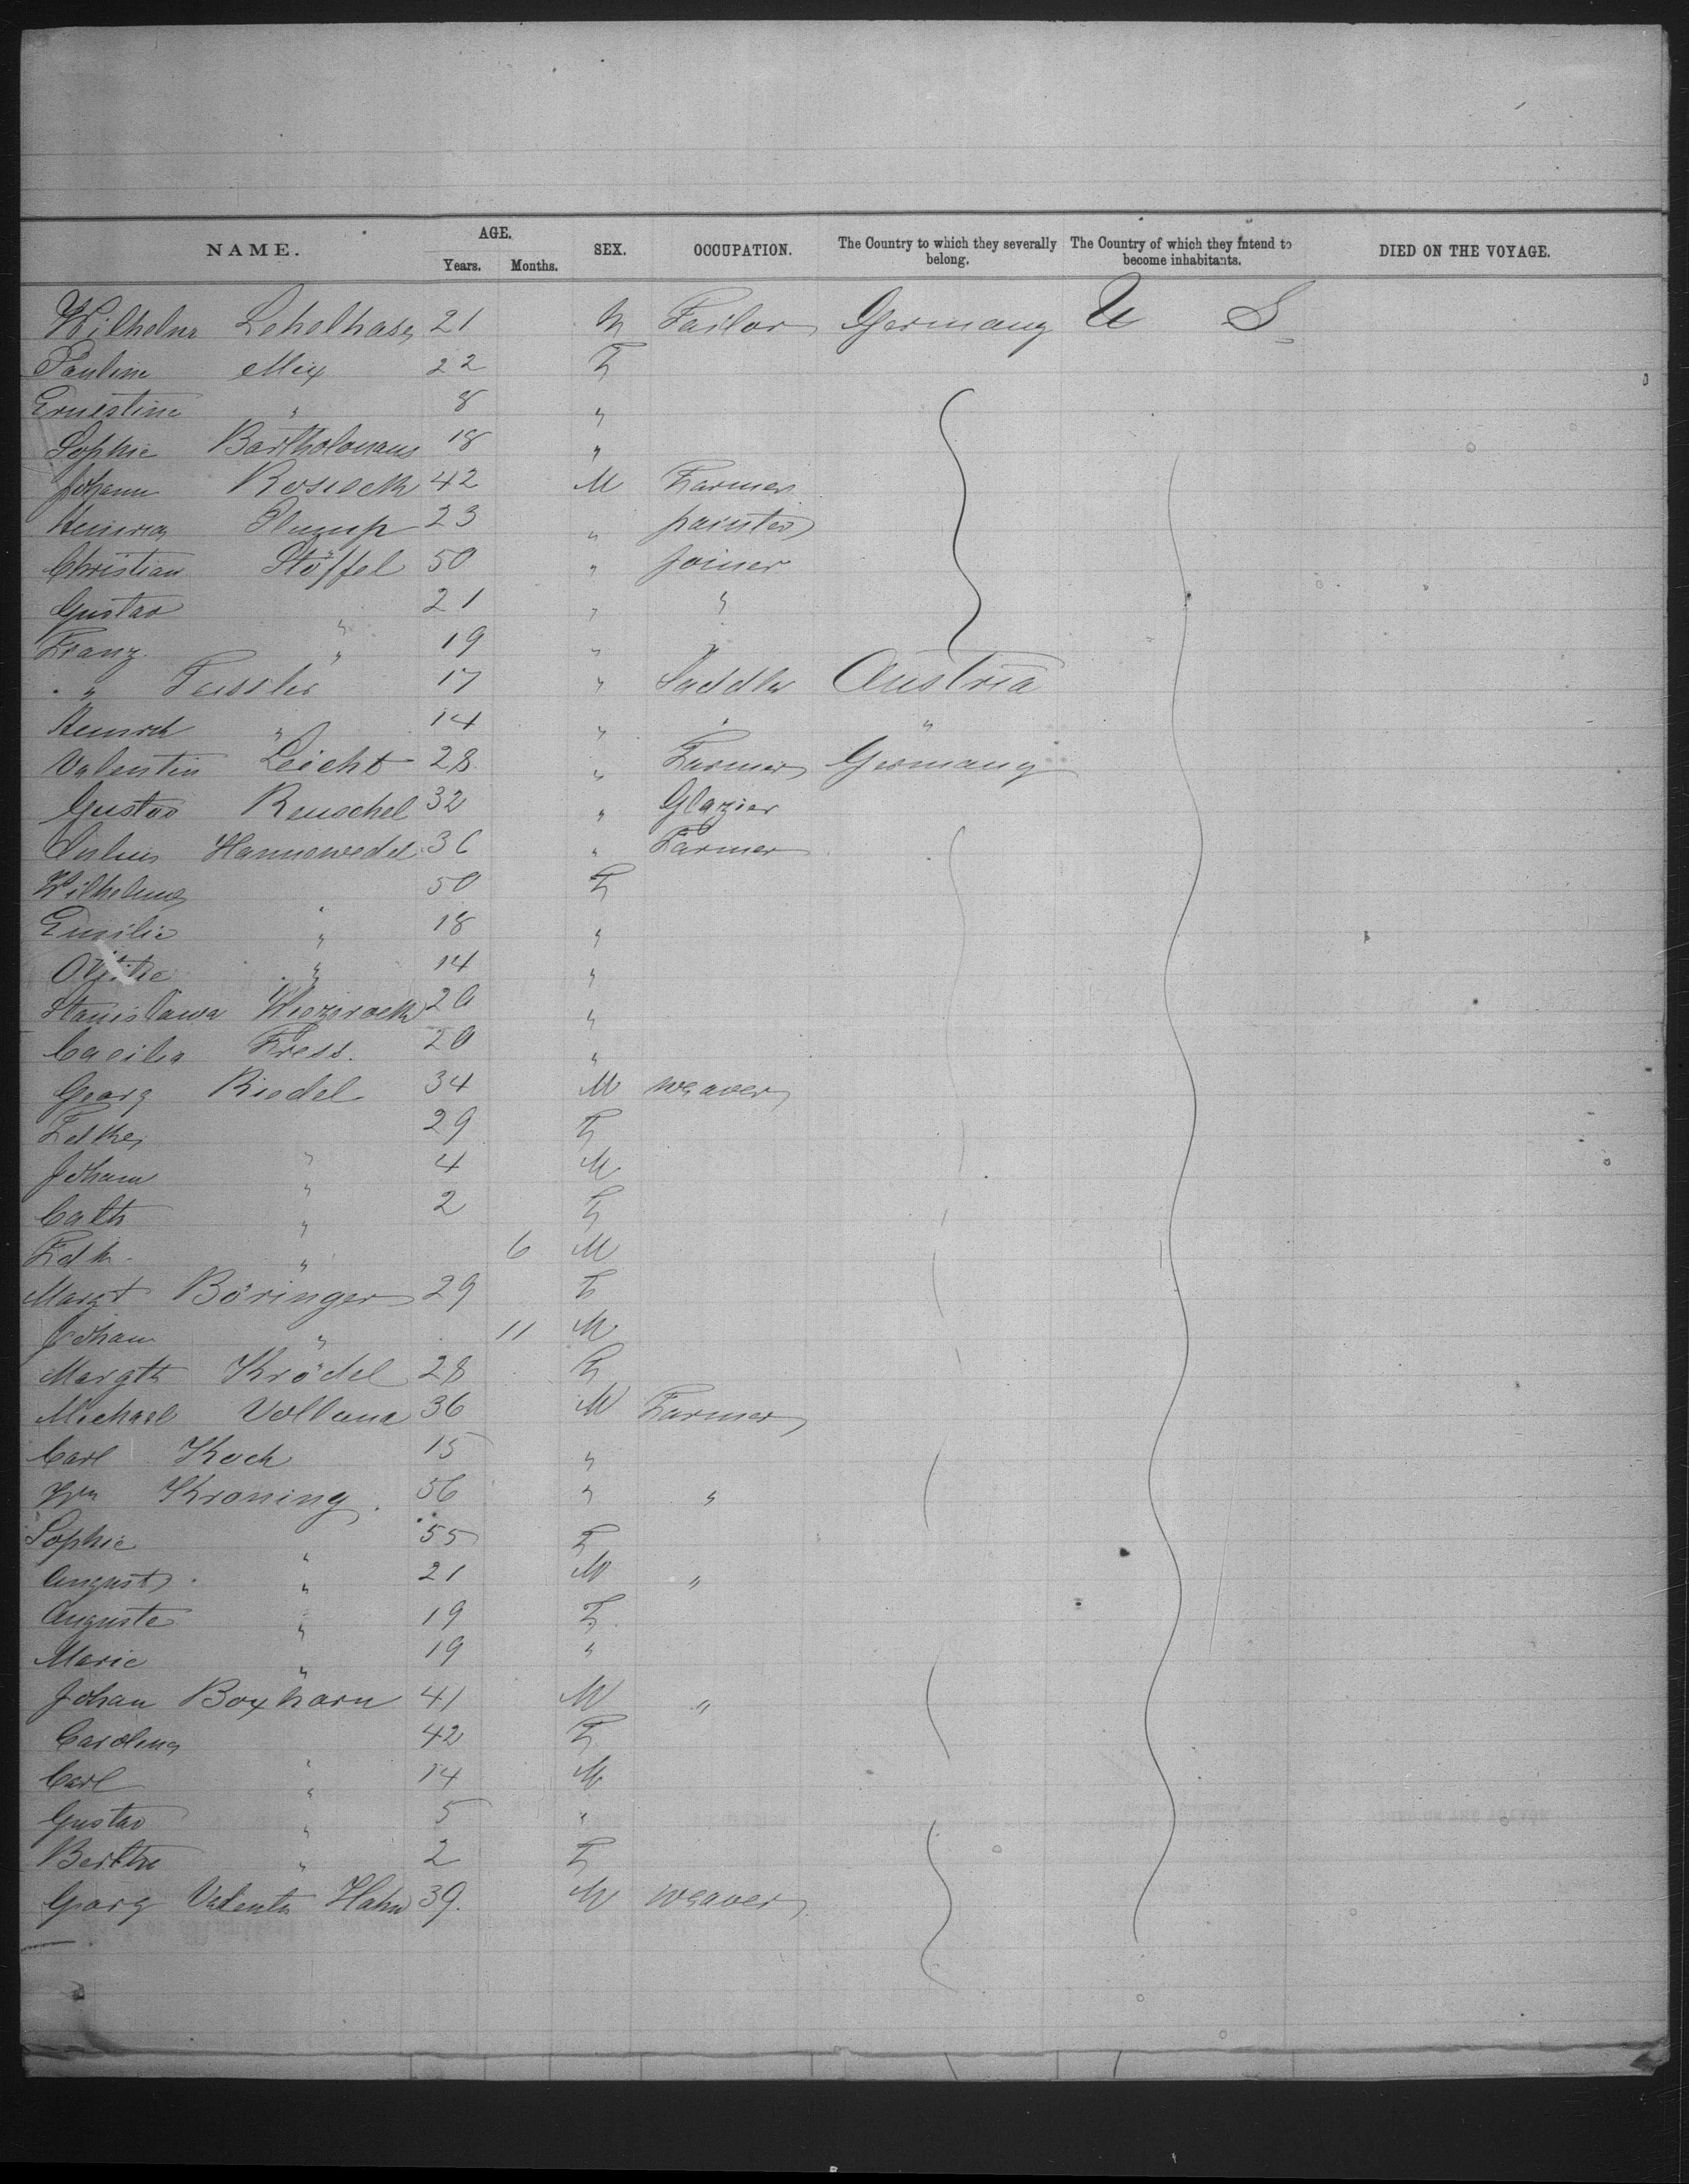 NAME. AGE. Years. Months. SEX. OCCUPATION. The Country to which they severally belong. The Country of which they intend to become inhabitants. DIED ON THE VOYAGE.
Wilhelm Lehelhase 21 M Tailor Germany U S
Pauline Mix 22 F
Ernestine " 8 "
Sophie Bartholomaus 18 "
Johann Rosieck 42 M Farmer
Heinrich Plump 23 " painter
Christian Stöffel 50 " joiner
Gustav " 21 " "
Franz " 19 "
" Feissler 17 " Saddler Austria
Heinrich " 14 " " "
Valentin Leicht 28 " Farmer Germany
Gustav Reuschel 32 " Glazier
Julius Hannowedel 36 " Farmer
Wilhelmina " 50 F
Emilie " 18 "
Ottilie " 14 "
Stanislawa 20 "
Cacilia Fress. 20 "
Georg Riedel 34 M weaver
29 F
Johann " 4 M
Cath " 2 F
Fdk. " 6 M
Margt Böringer 29 F
Johan " 11 M
Margth Krödel 28 F
Michael Vollana 36 M Farmer
Carl Koch 15 "
Wm Kroning. 56 " "
Sophie " 55 F
August " 21 M "
Auguste " 19 F
Marie " 19 "
Johan Boxhorn 41 M "
Carolina " 42 F
Carl " 14 M
Gustav " 5 "
Bertha " 2 F
Georg Valentin Hahn 39. M weaver